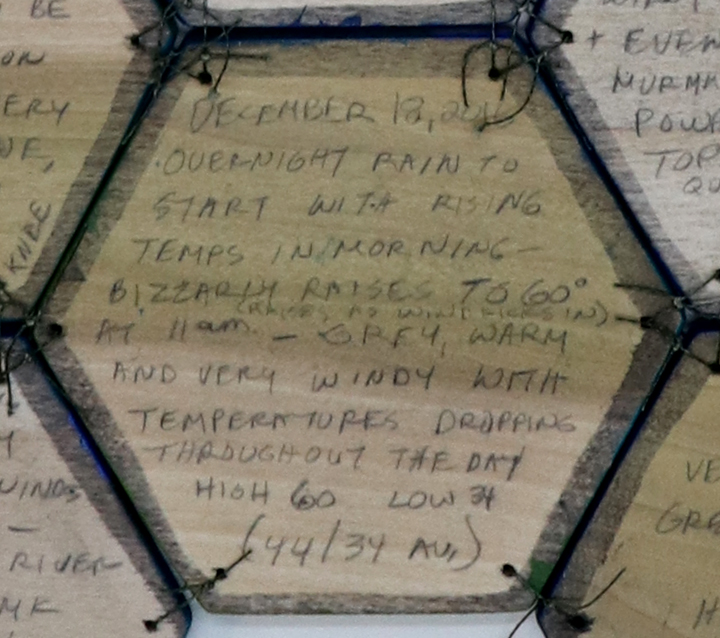 BE
ON
ERY
KNEE
+ EVEN
POW
TOP
QU
DECEMBER 18,
OVERNIGHT RAIN TO
START WITH RISING
TEMPS IN MORNING –
BIZZARLY RAISES TO 60°
(RAISES AS WIND KICKS IN)
AT 11am – GREY, WARM
AND VERY WINDY WITH
TEMPERATURES DROPPING
THROUGHOUT THE DAY
HIGH 60 LOW 34
(44/34 AV.)
WINDS
–
RIVER
VE
GRE
H